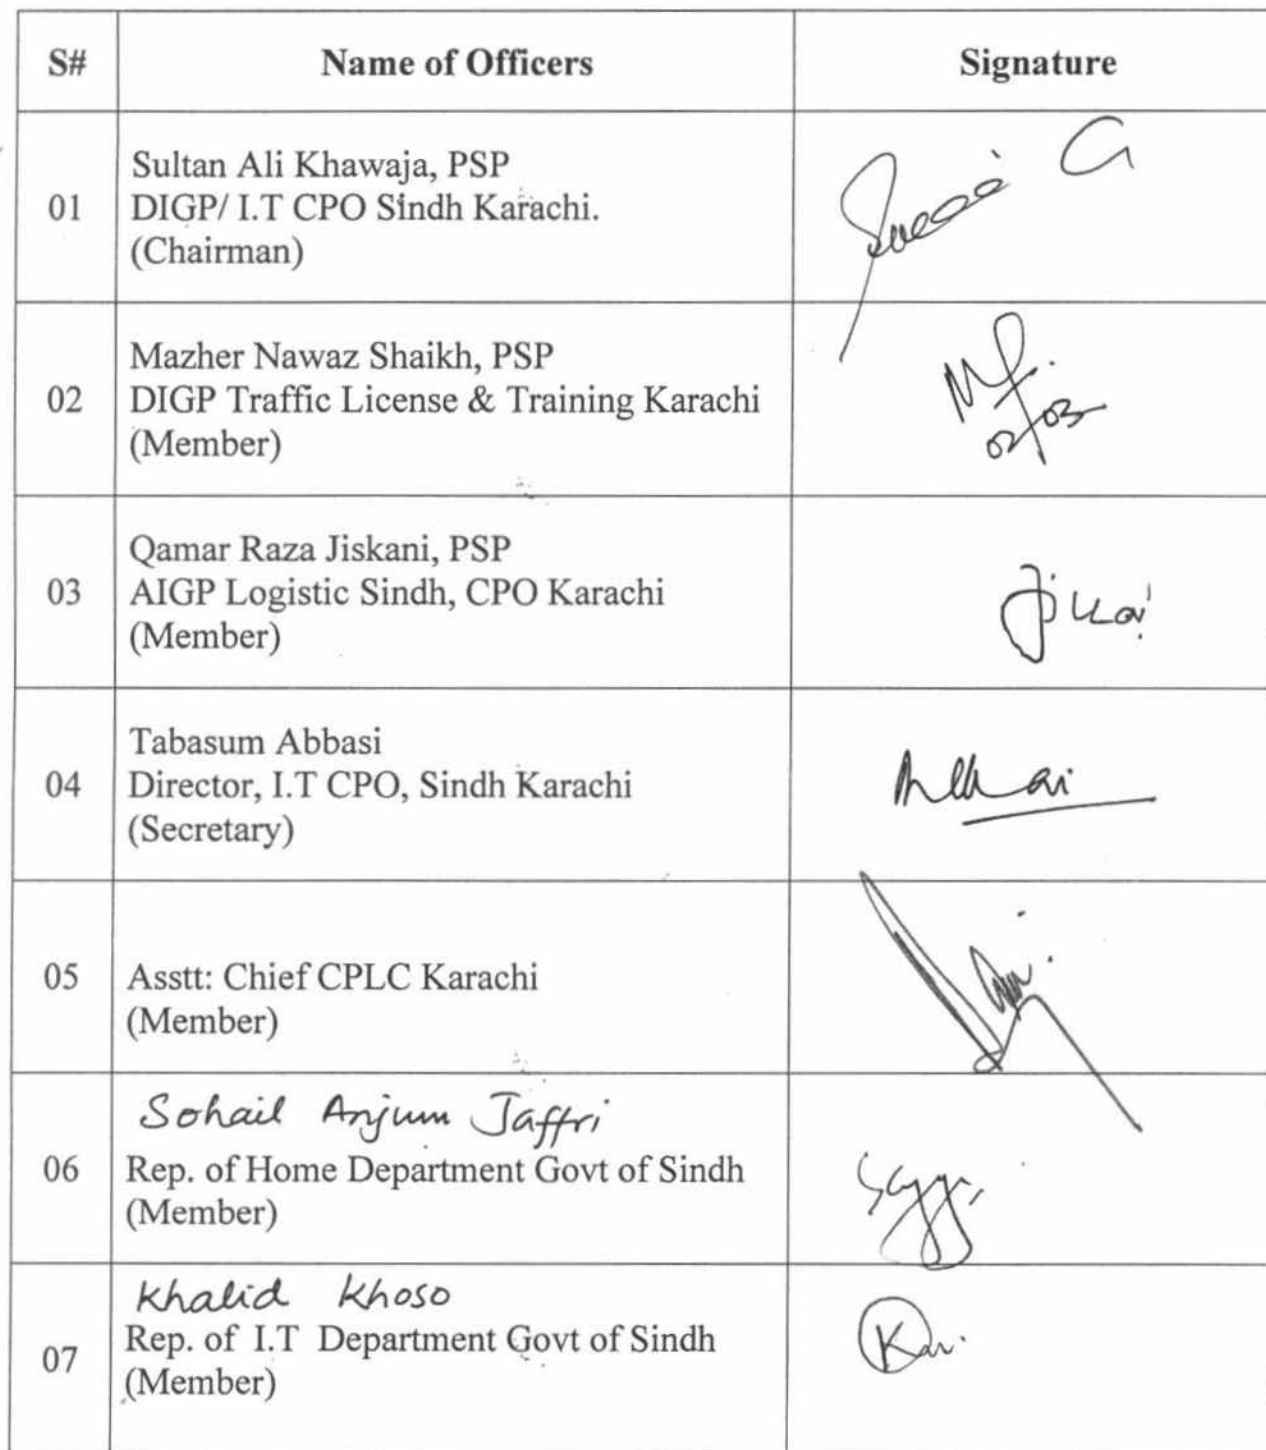 S# Name of Officers Signature
01
Sultan Ali Khawaja, PSP
DIGP/ I.T CPO Sindh Karachi.
(Chairman)
02
Mazher Nawaz Shaikh, PSP
DIGP Traffic License & Training Karachi
(Member)
02/03
03
Qamar Raza Jiskani, PSP
AIGP Logistic Sindh, CPO Karachi
(Member)
04
Tabasum Abbasi
Director, I.T CPO, Sindh Karachi
(Secretary)
05
Asstt: Chief CPLC Karachi
(Member)
06
Sohail Anjum Jaffri
Rep. of Home Department Govt of Sindh
(Member)
07
Khalid Khoso
Rep. of I.T Department Govt of Sindh
(Member)